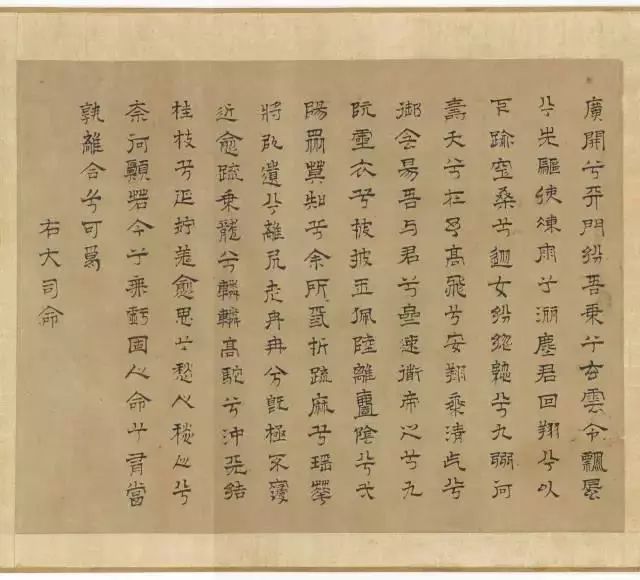 廣開兮天門紛吾乘兮玄雲令飄風
兮先驅使涷雨兮灑塵君回翔兮以
下踰空桑兮從女紛總總兮九州何
壽夭兮在予高飛兮安翔乘清气兮
御侌昜吾与君兮齊速導帝之兮九
阬靈衣兮披披玉佩陸離壹陰兮弌
陽衆莫知兮余所爲折疏麻兮瑶華
將以遺兮離居老冉冉兮既極不寖
近愈疏乘龍兮轔轔高駝兮沖天結
桂枝兮延竚羌愈思兮愁人愁人兮
奈何願若今兮無虧固人命兮有當
孰離合兮可爲
右大司命